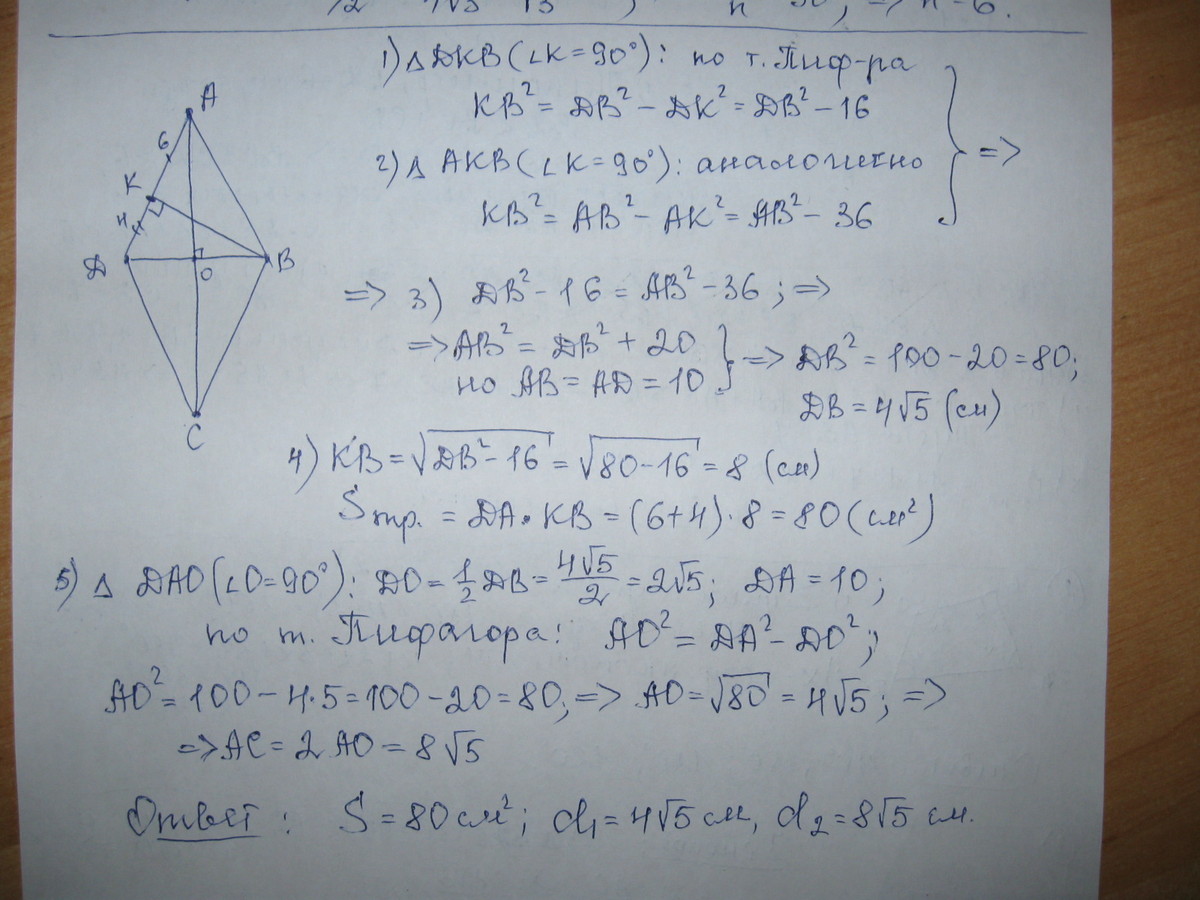 n = 6.
1) Δ DKB (∠K = 90°): по т. Пиф-ра
KB² = DB² − DK² = DB² − 16
2) Δ AKB (∠K = 90°): аналогично
KB² = AB² − AK² = AB² − 36
} =>
A
6
K
4
D
O
B
C
=> 3) DB² − 16 = AB² − 36; =>
=> AB² = DB² + 20
но AB = AD = 10
} => DB² = 100 − 20 = 80;
DB = 4√5 (см)
4) KB = √DB² − 16 = √80 − 16 = 8 (см)
Sтр. = DA · KB = (6+4) · 8 = 80 (см²)
5) Δ DAO (∠O = 90°): DO = 1/2 DB = 4√5/2 = 2√5; DA = 10;
по т. Пифагора: AO² = DA² − DO²;
AO² = 100 − 4·5 = 100 − 20 = 80; => AO = √80 = 4√5; =>
=> AC = 2 AO = 8√5
Ответ: S = 80 см²; d₁ = 4√5 см, d₂ = 8√5 см.